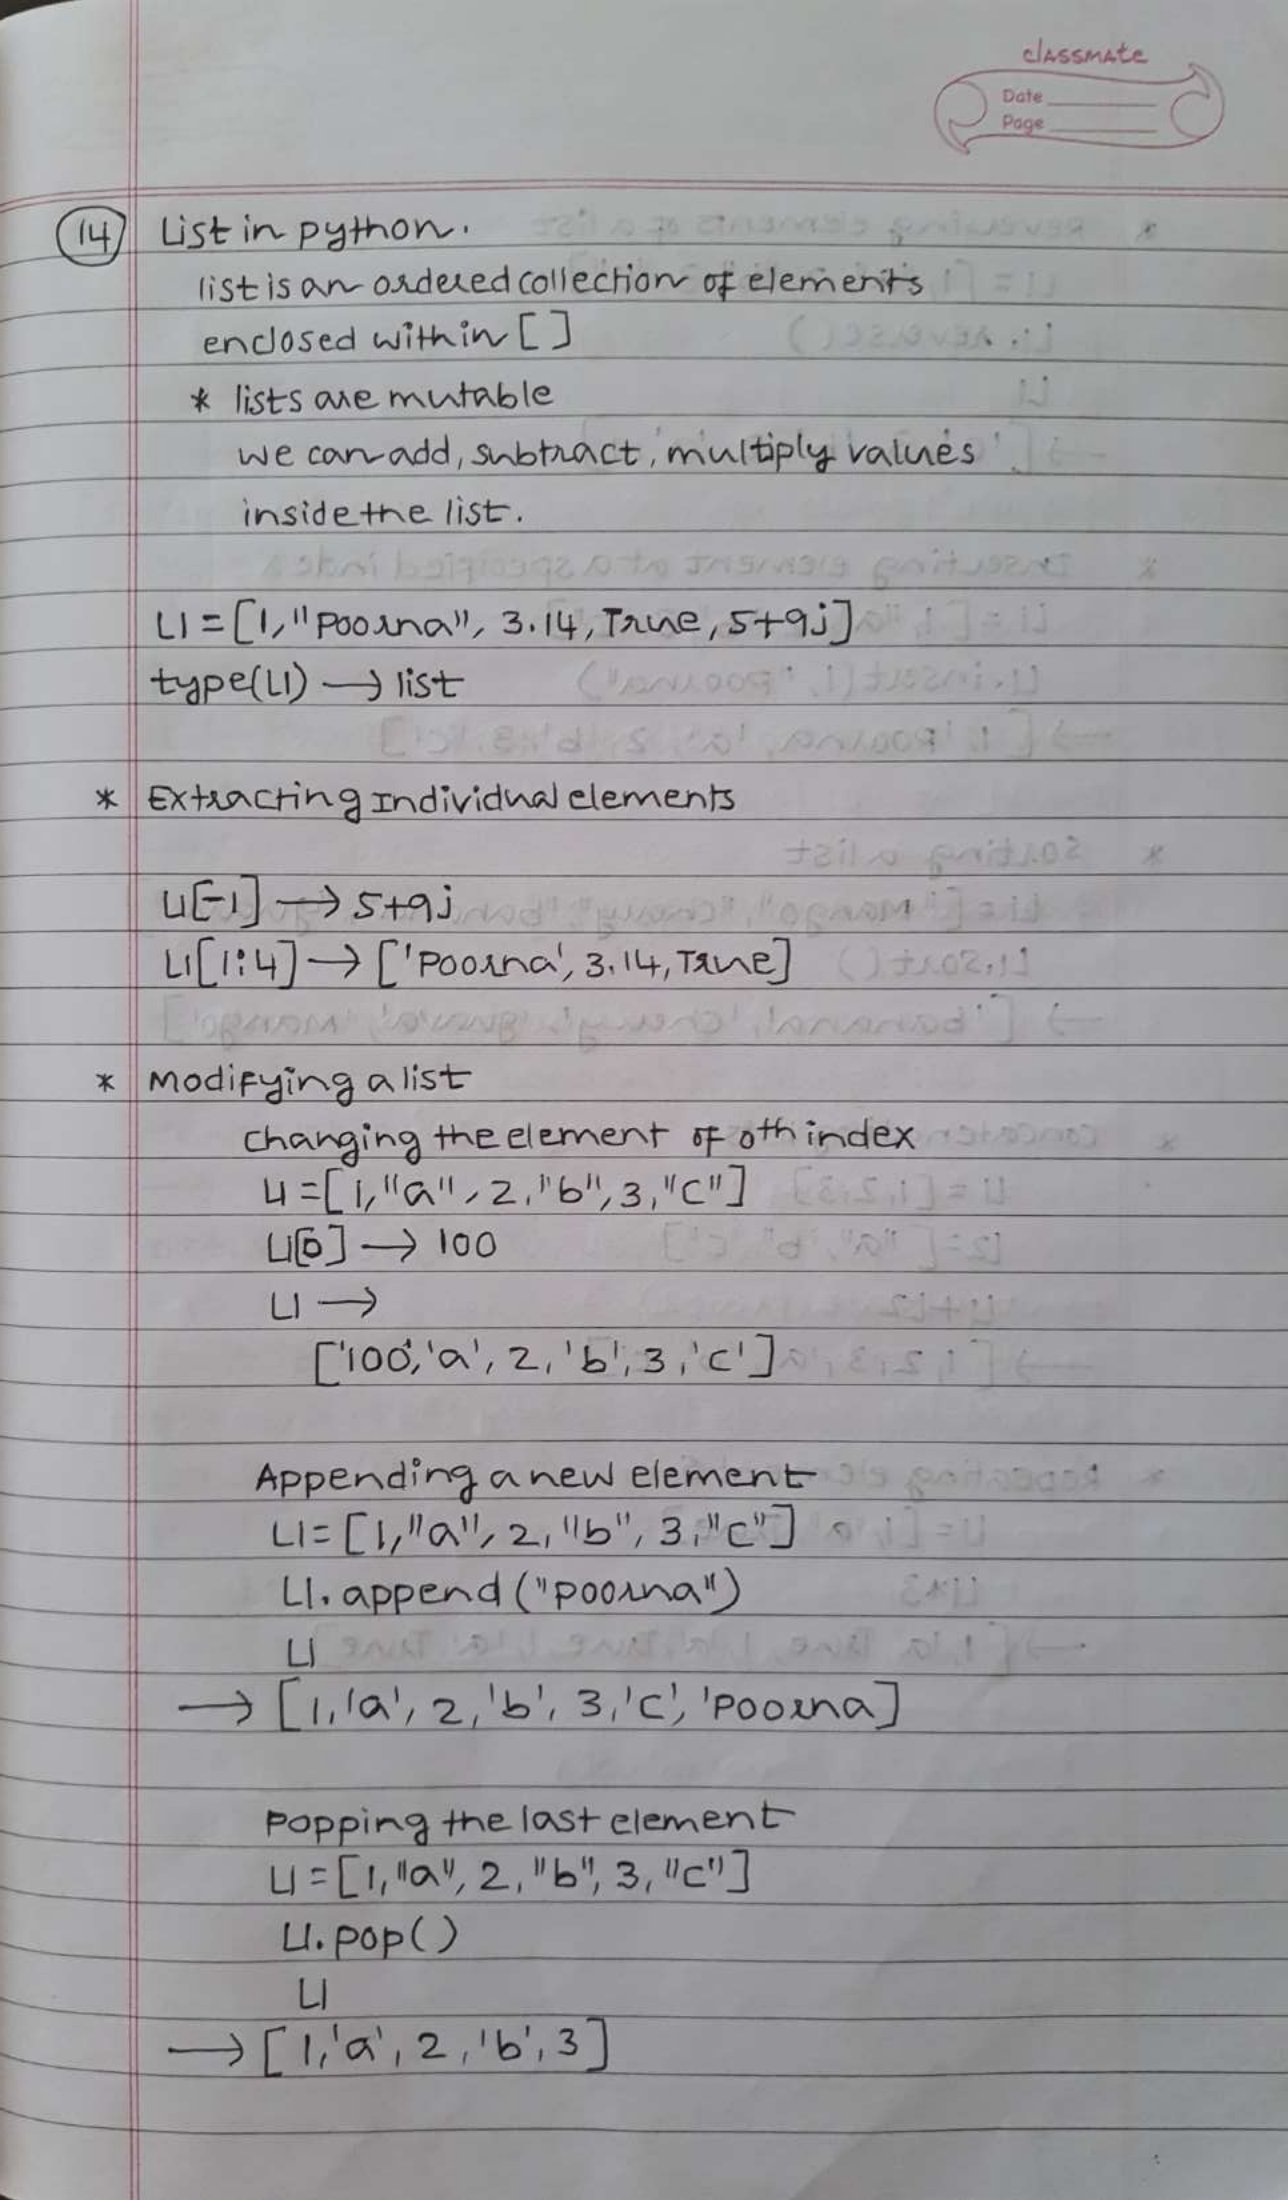 classmate
Date
Page
14 List in python.
list is an ordered collection of elements
enclosed within [ ]
* lists are mutable
we can add, subtract, multiply values
inside the list.
L1 = [1, "Poorna", 3.14, True, 5+9j]
type(L1) → list
* Extracting Individual elements
L1[-1] → 5+9j
L1[1:4] → ['Poorna', 3.14, True]
* Modifying a list
changing the element of 0th index
L1 = [1, "a", 2, "b", 3, "c"]
L1[0] → 100
L1 →
['100', 'a', 2, 'b', 3, 'c']
Appending a new element
L1 = [1, "a", 2, "b", 3, "c"]
L1.append("poorna")
L1
→ [1, 'a', 2, 'b', 3, 'c', 'Poorna]
Popping the last element
L1 = [1, "a", 2, "b", 3, "c"]
L1.pop()
L1
→ [1, 'a', 2, 'b', 3]